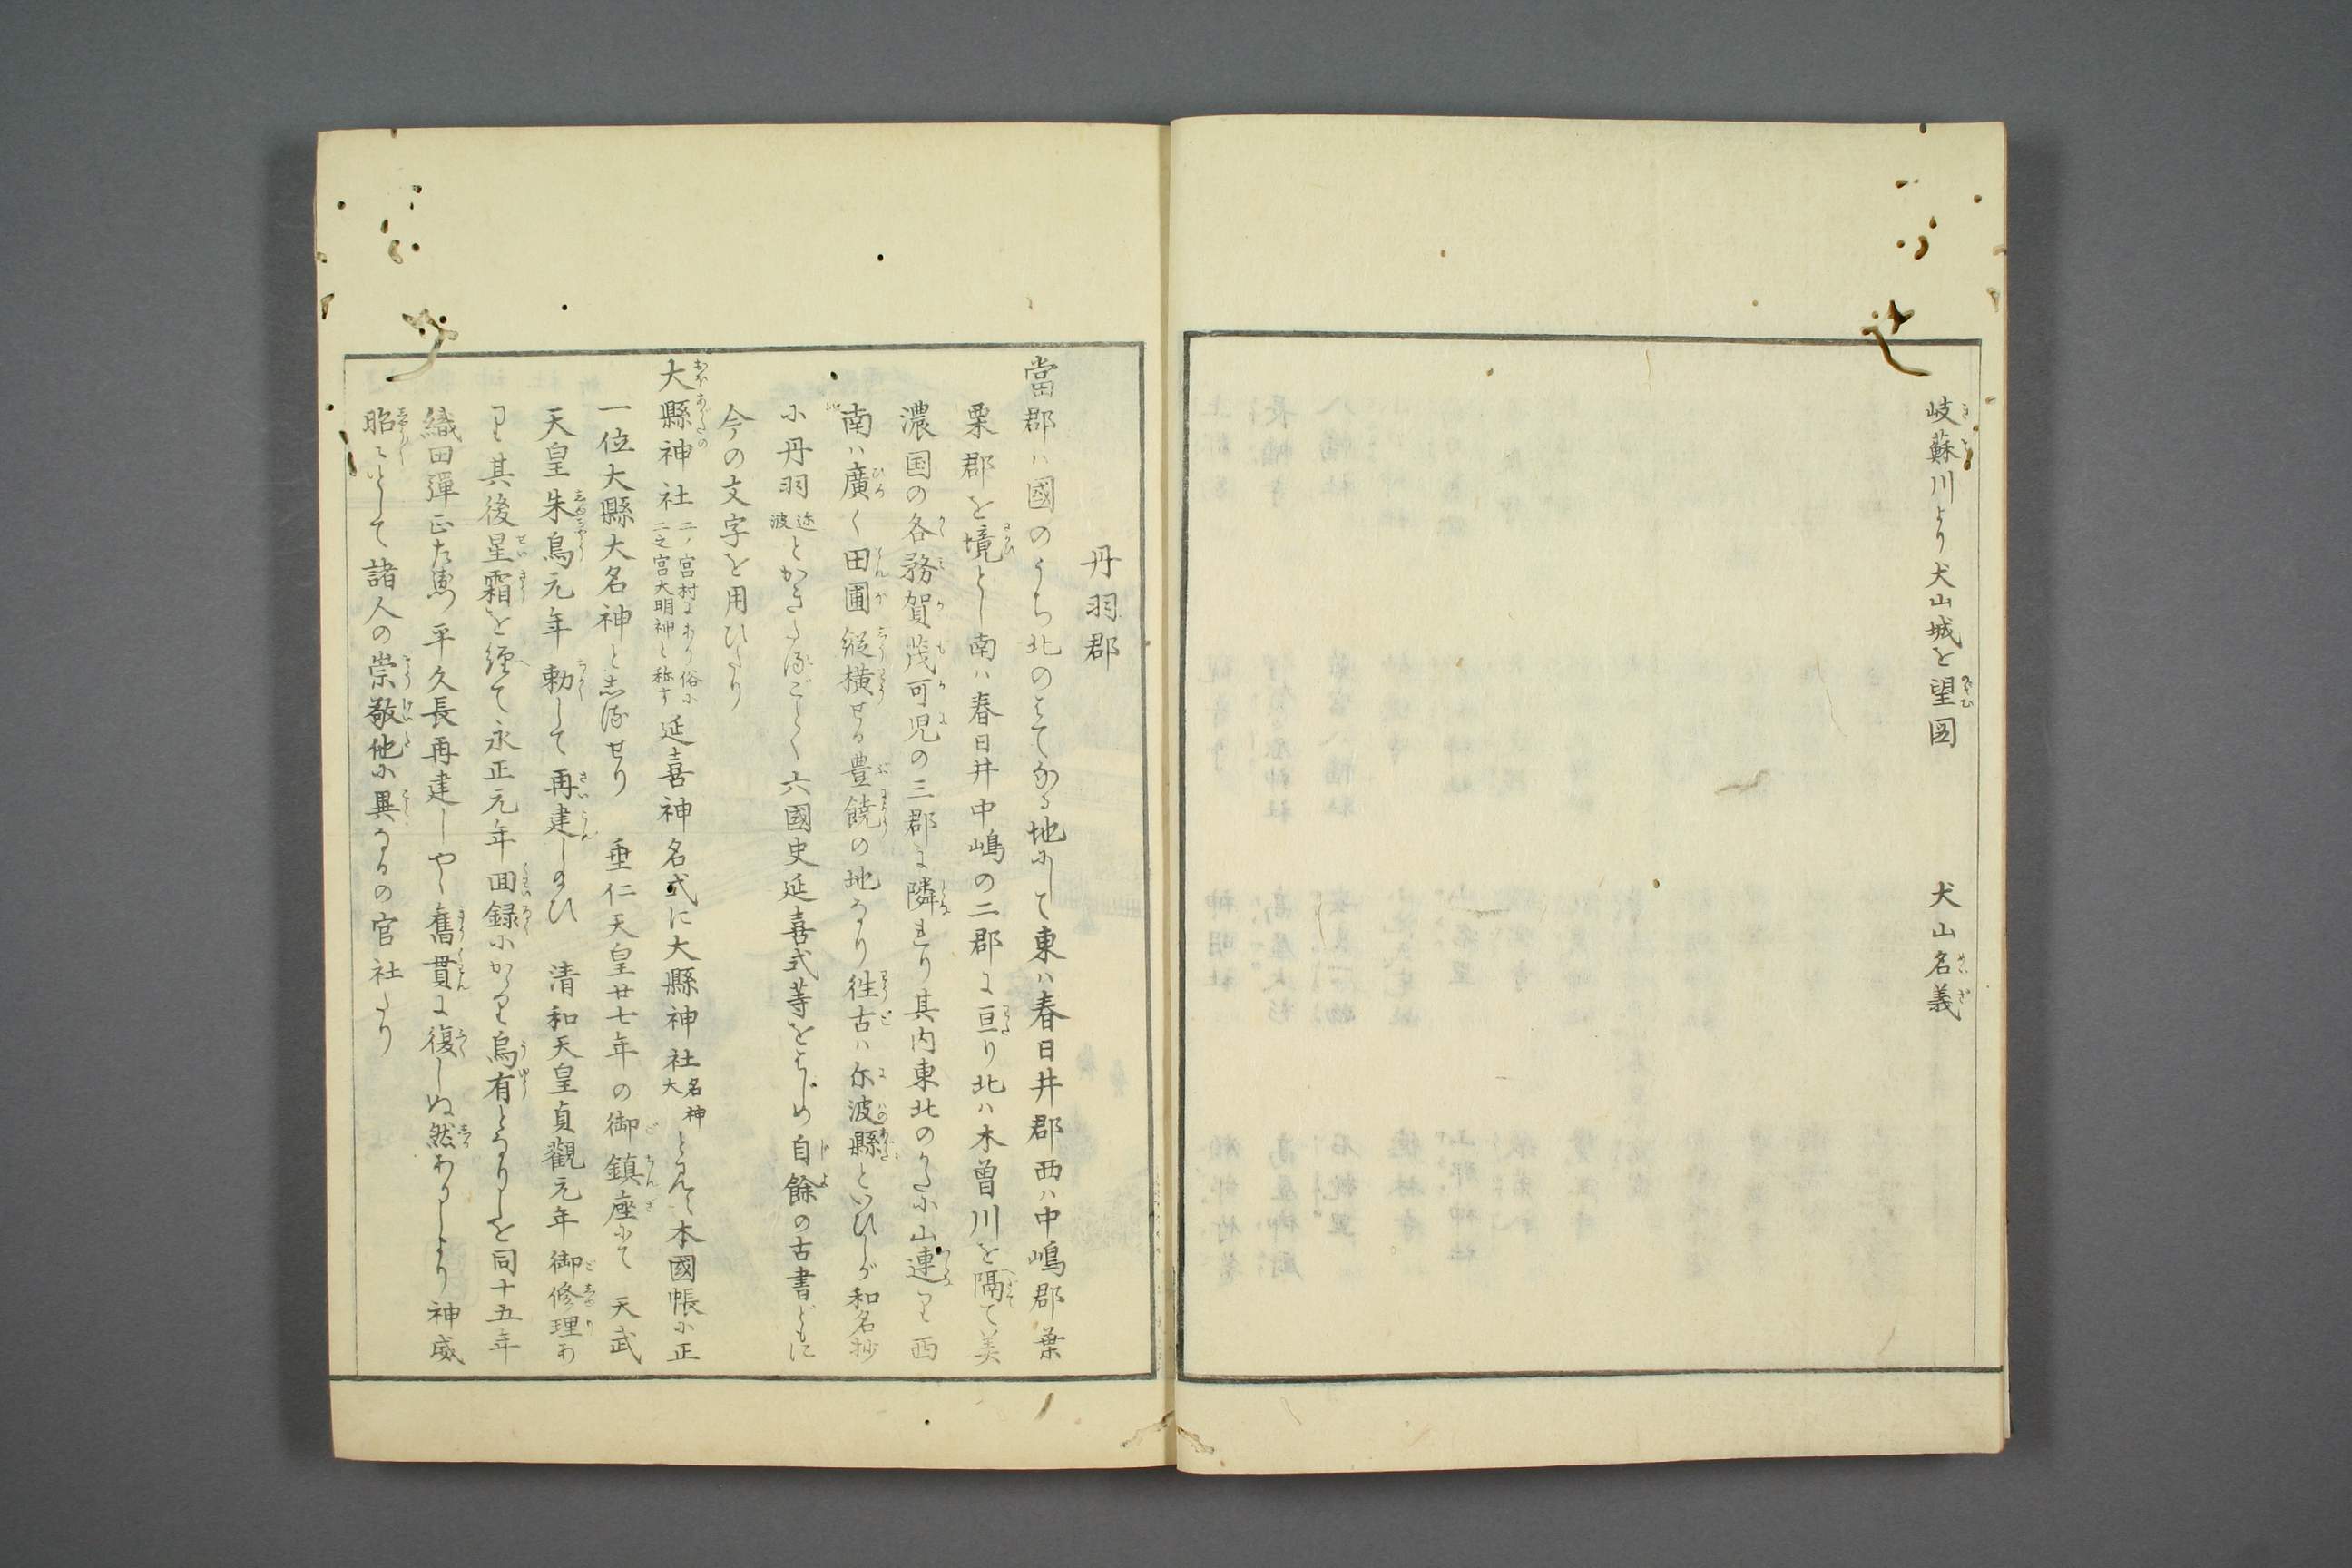 岐蘇川より犬山城を望図　犬山名義
丹羽郡
當郡ハ國のうち北のはてなる地にして東ハ春日井郡西ハ中嶋郡葉
栗郡を境とし南ハ春日井中嶋の二郡に亘り北ハ木曽川を隔て美
濃国の各務賀茂可児の三郡に隣れり其内東北のかたに山連り西
南ハ廣く田圃縦横せる豊饒の地なり徃古ハ尓波縣といひしが和名抄
に丹羽迩波とかきたるごとく六國史延喜式等をはじめ自餘の古書どもに
今の文字を用ひたり
大縣神社二ノ宮村にあり俗に二之宮大明神と称す延喜神名式に大縣神社名神大と見え本國帳に正
一位大縣大名神と志るせり　垂仁天皇廿七年の御鎮座にて　天武
天皇朱鳥元年勅して再建し給ひ　清和天皇貞觀元年御修理あ
り其後星霜を經て永正元年回録にかゝり烏有となりしを同十五年
織田彈正左衛門平久長再建しやゝ舊貫に復しぬ然ありしより神威
昭〻として諸人の崇敬他に異なるの官社たり